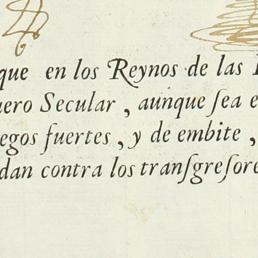 que en los Reynos de las
uero Secular, aunque ſea e
egos fuertes, y de embite,
dan contra los tranſgreſore